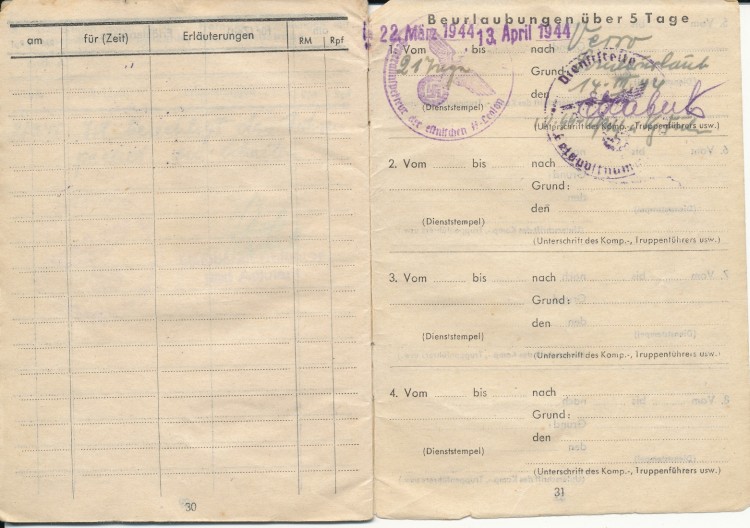 am für (Zeit) Erläuterungen RM Rpf
30
Beurlaubungen über 5 Tage
22. März 1944 13. April 1944
1. Vom bis nach
21 Tage
Grund: 
den
(Dienststempel)
(Unterschrift des Komp.-, Truppenführers usw.)
der estnischen Legion
Dienststelle
Feldpostnummer
2. Vom bis nach
Grund:
den
(Dienststempel)
(Unterschrift des Komp.-, Truppenführers usw.)
3. Vom bis nach
Grund:
den
(Dienststempel)
(Unterschrift des Komp.-, Truppenführers usw.)
4. Vom bis nach
Grund:
den
(Dienststempel)
(Unterschrift des Komp.-, Truppenführers usw.)
31